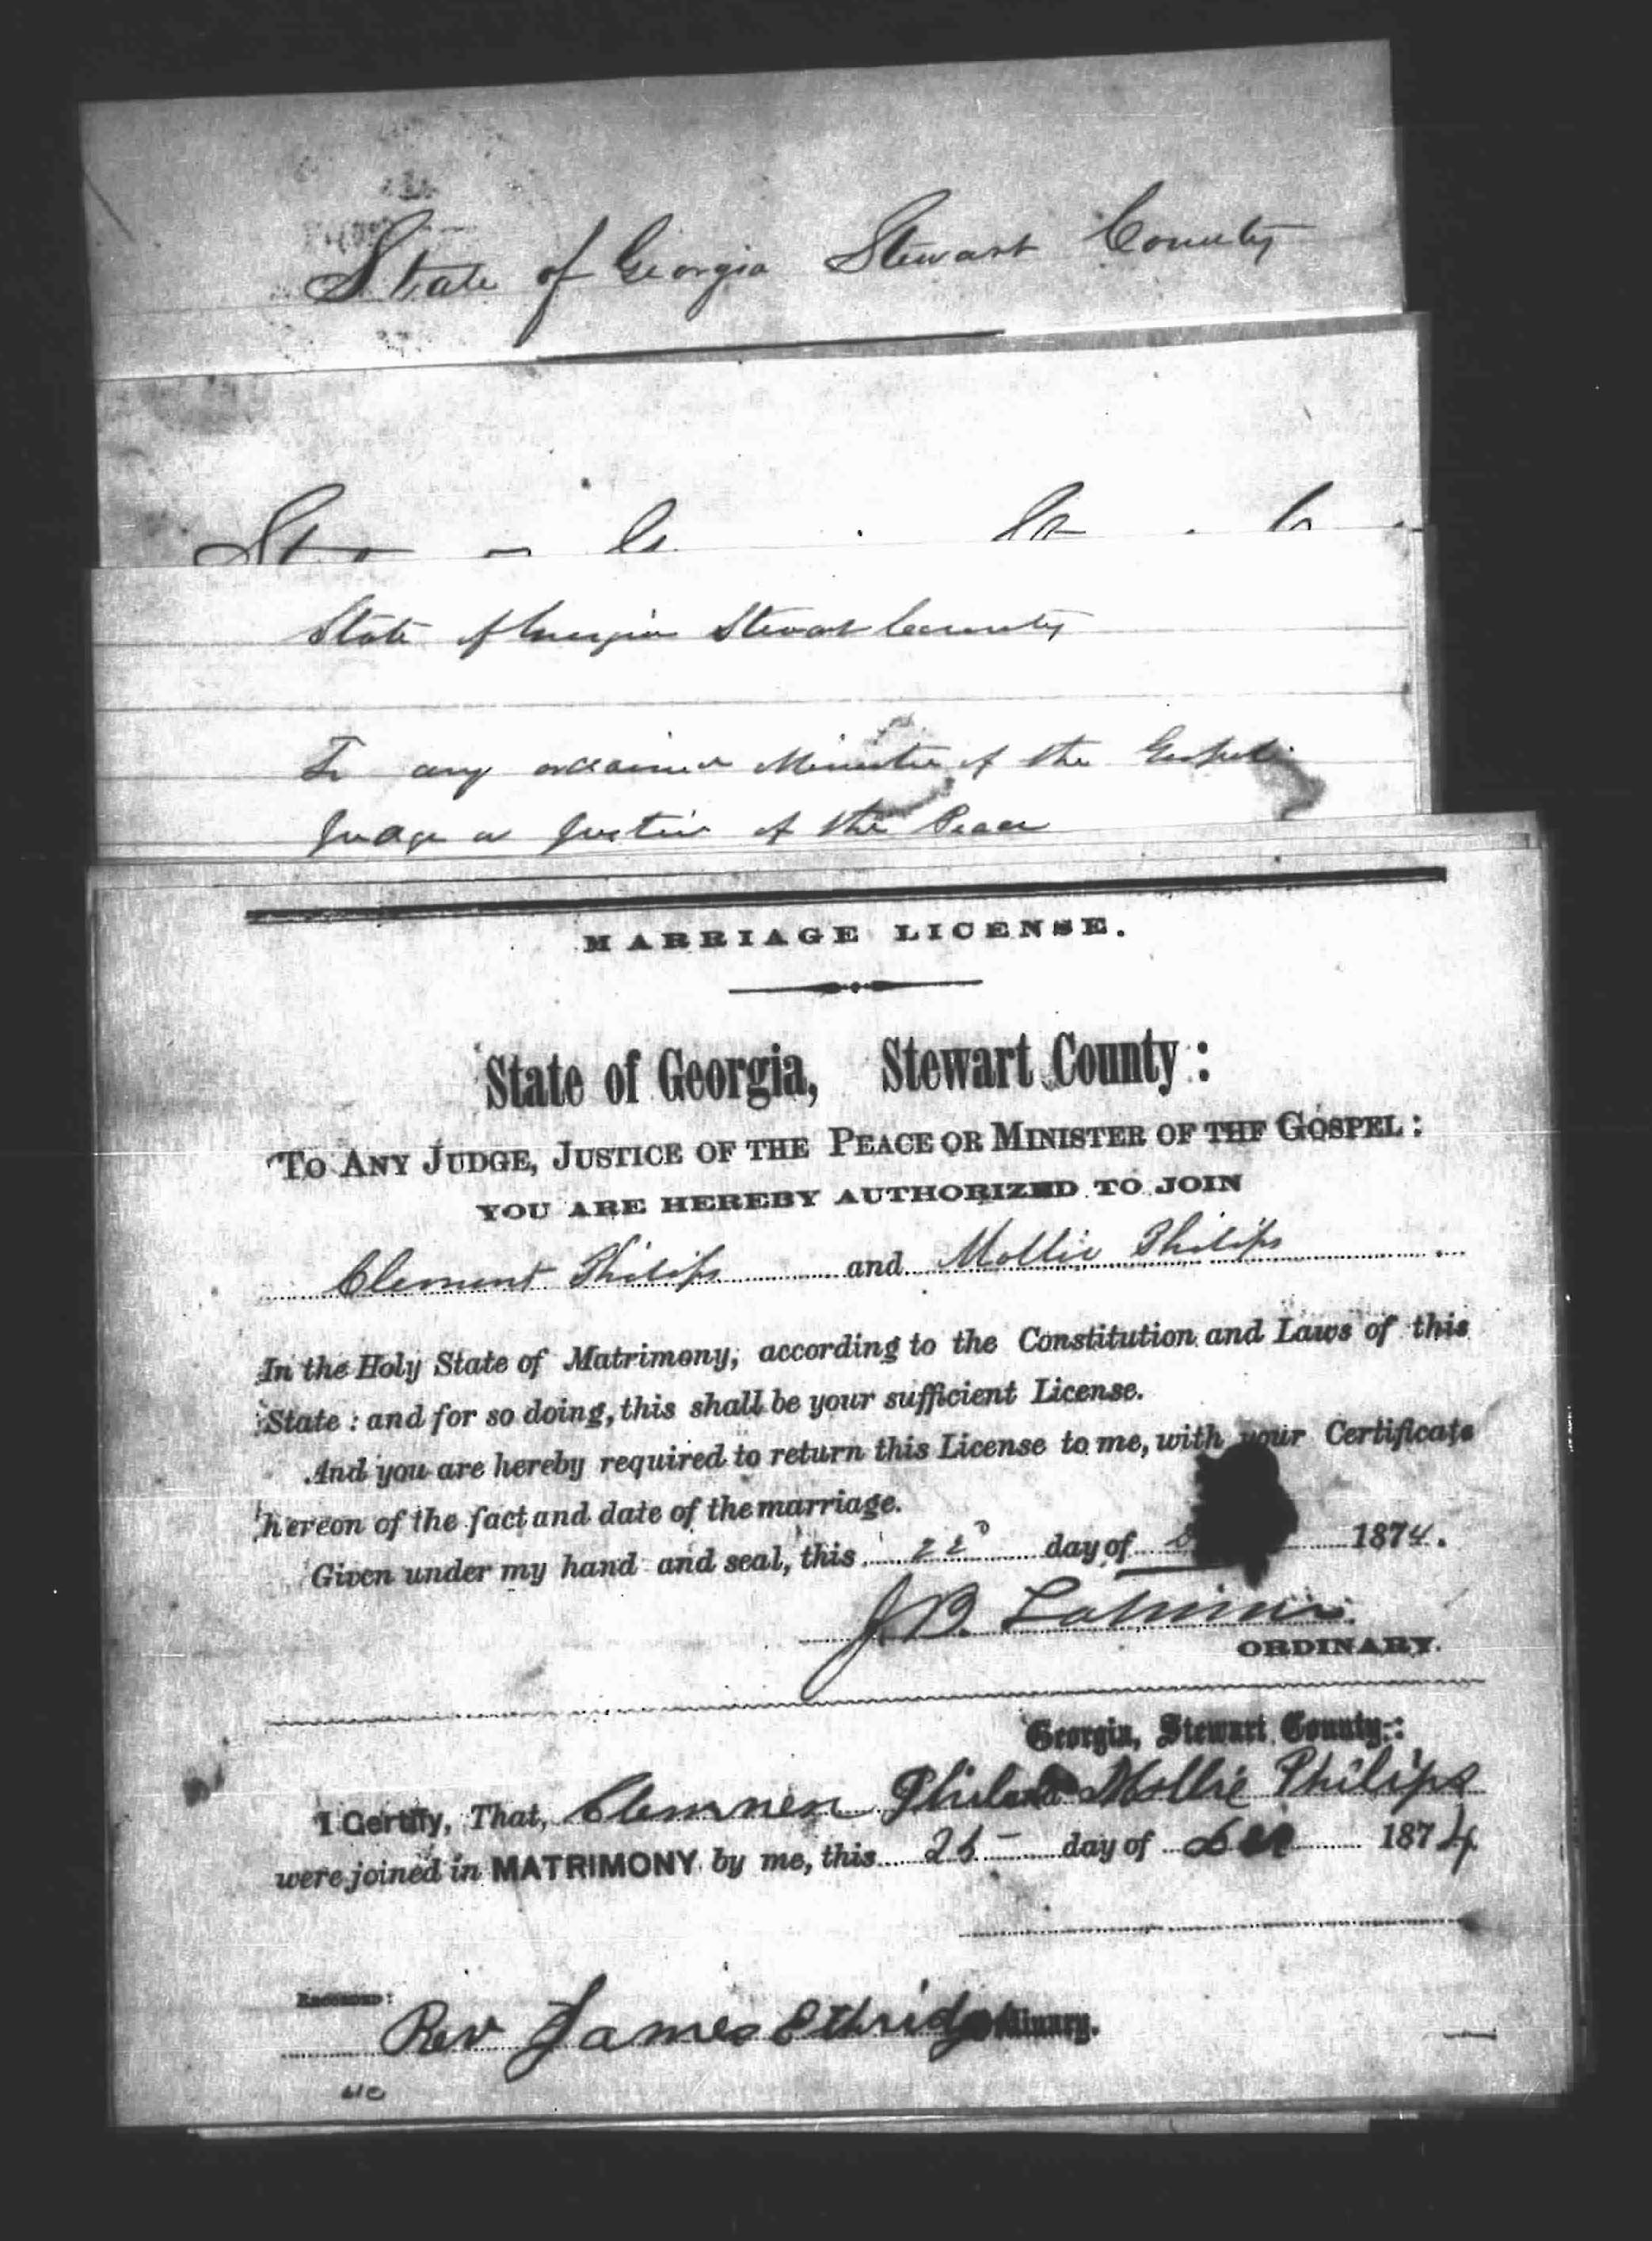 State of Georgia Stewart County
State of Georgia Stewart County
To any ordained Minister of the Gospel
Judge or Justice of the Peace
MARRIAGE LICENSE.
State of Georgia, Stewart County:
TO ANY JUDGE, JUSTICE OF THE PEACE OR MINISTER OF THE GOSPEL:
YOU ARE HEREBY AUTHORIZED TO JOIN
Clement Philips and Mollie Philips
In the Holy State of Matrimony, according to the Constitution and Laws of this
State: and for so doing, this shall be your sufficient License.
And you are hereby required to return this License to me, with your Certificate
hereon of the fact and date of the marriage.
Given under my hand and seal, this 22d day of 1874.
J.B. Latimer
ORDINARY.
Georgia, Stewart County:
I Certify, That, Clemmen Phil and Mollie Philips
were joined in MATRIMONY by me, this 25 day of Dec 1874
Recorded:
Rev James Ethridge